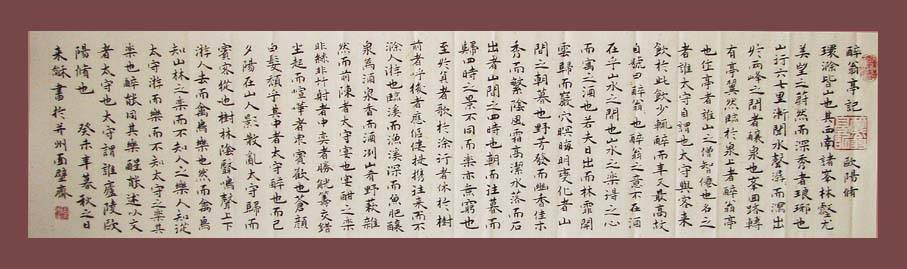 醉翁亭記 歐陽脩
環滁皆山也其西南諸峯林壑尤
美望之蔚然而深秀者琅琊也
山行六七里漸聞水聲潺而瀉出
於兩峰之間者釀泉也峯回路轉
有亭翼然臨於泉上者醉翁亭
也作亭者誰山之僧智僊也名之
者誰太守自謂也太守與客來
飲於此飲少輒醉而年又最高故
自號曰醉翁也醉翁之意不在酒
在乎山水之間也山水之樂得之心
而寓之酒也若夫日出而林霏開
雲歸而巖穴暝晦明變化者山
間之朝暮也野芳發而幽香佳木
秀而繁陰風霜高潔水落而石
出者山間之四時也朝而往暮而
歸四時之景不同而樂亦無窮也
至於負者歌於塗行者休於樹
前者呼後者應傴僂提攜往來而不
滁人遊也臨溪而漁溪深而魚肥釀
泉為酒泉香而酒洌山肴野蔌雜
然而前陳者太守宴也宴酣之樂
非絲非竹射者中奕者勝觥籌交錯
坐起而諠譁者眾賓懽也蒼顏
白髮頹乎其中者太守醉也已而
夕陽在山人影散亂太守歸而
賓客從也樹林陰翳鳴聲上下
遊人去而禽鳥樂也然而禽鳥
知山林之樂而不知人之樂人知從
太守遊而樂而不知太守之樂其
樂也醉能同其樂醒能述以文
者太守也太守謂誰廬陵歐
陽脩也 癸未年暮秋之日
來穌書於并州面壁齋